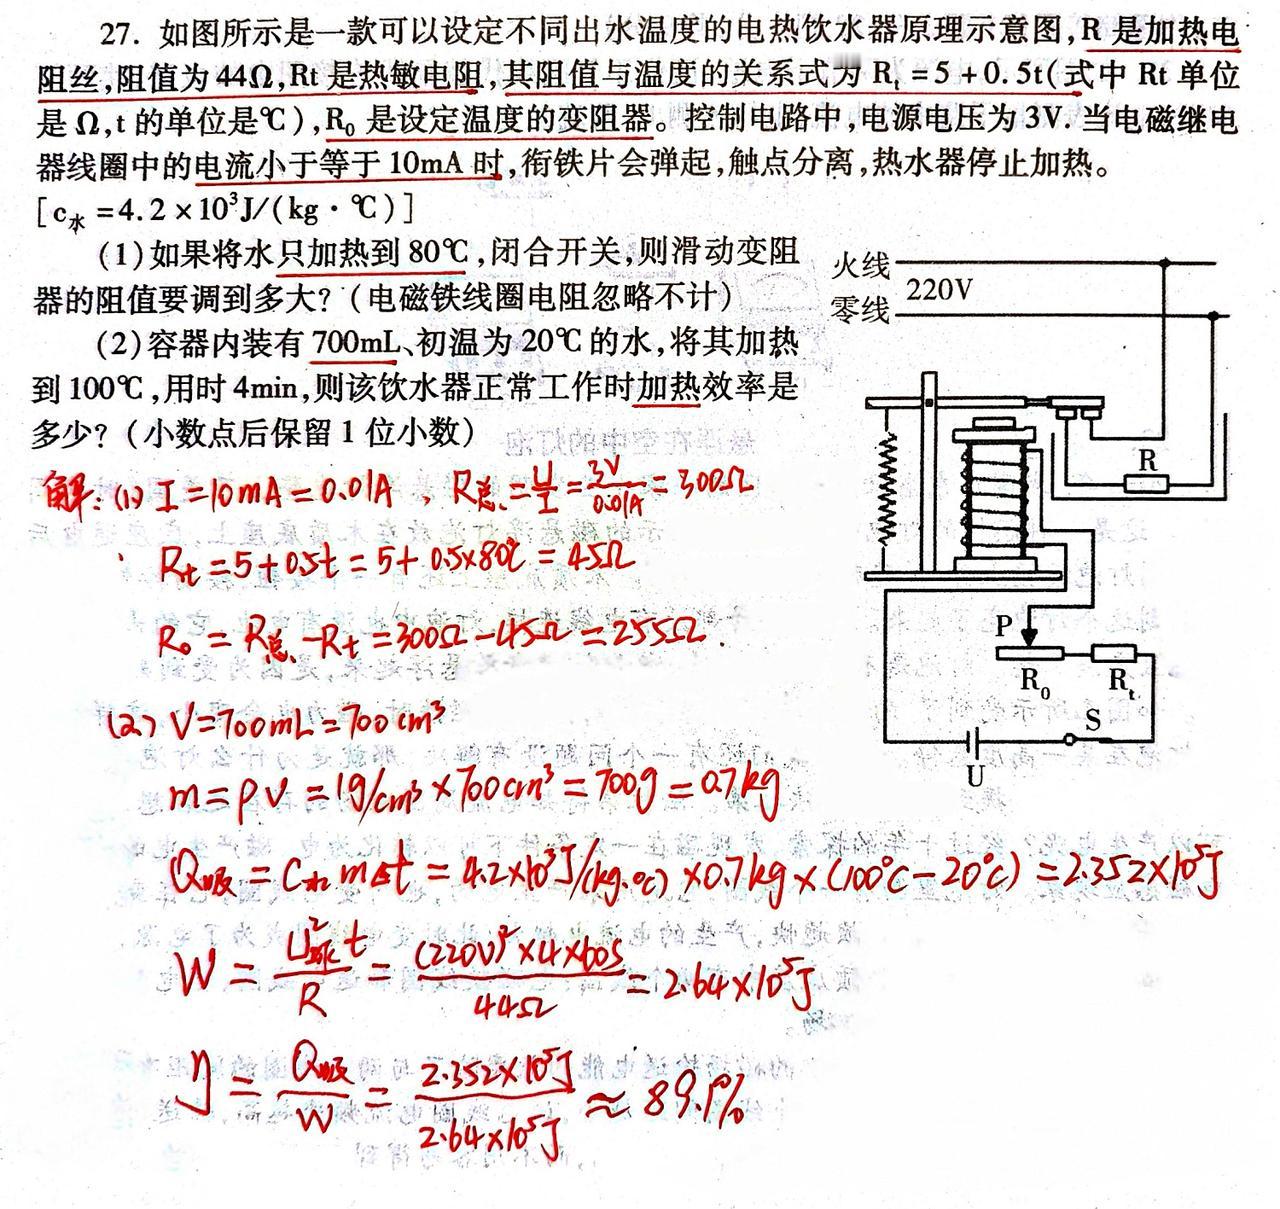 27. 如图所示是一款可以设定不同出水温度的电热饮水器原理示意图,R 是加热电
阻丝,阻值为 44Ω,Rt 是热敏电阻,其阻值与温度的关系式为 Rt =5+0.5t(式中 Rt 单位
是 Ω,t 的单位是℃),R₀ 是设定温度的变阻器。控制电路中,电源电压为 3V. 当电磁继电
器线圈中的电流小于等于 10mA 时,衔铁片会弹起,触点分离,热水器停止加热。
[c水 =4.2×10³J/(kg·℃)]
(1)如果将水只加热到 80℃,闭合开关,则滑动变阻
器的阻值要调到多大?(电磁铁线圈电阻忽略不计)
(2)容器内装有 700mL、初温为 20℃ 的水,将其加热
到 100℃,用时 4min,则该饮水器正常工作时加热效率是
多少?(小数点后保留 1 位小数)
火线
220V
零线
R
P
R₀
Rt
S
U
解:(1) I=10mA=0.01A , R总=U/I=3V/0.01A=300Ω
Rt=5+0.5t=5+0.5×80℃=45Ω
R₀=R总-Rt=300Ω-45Ω=255Ω.
(2) V=700mL=700cm³
m=ρV=1g/cm³×700cm³=700g=0.7kg
Q吸=C水m△t=4.2×10³J/(kg·℃)×0.7kg×(100℃-20℃)=2.352×10⁵J
W=U²源t/R=(220V)²×4×60S/44Ω=2.64×10⁵J
η=Q吸/W=2.352×10⁵J/2.64×10⁵J≈89.1%